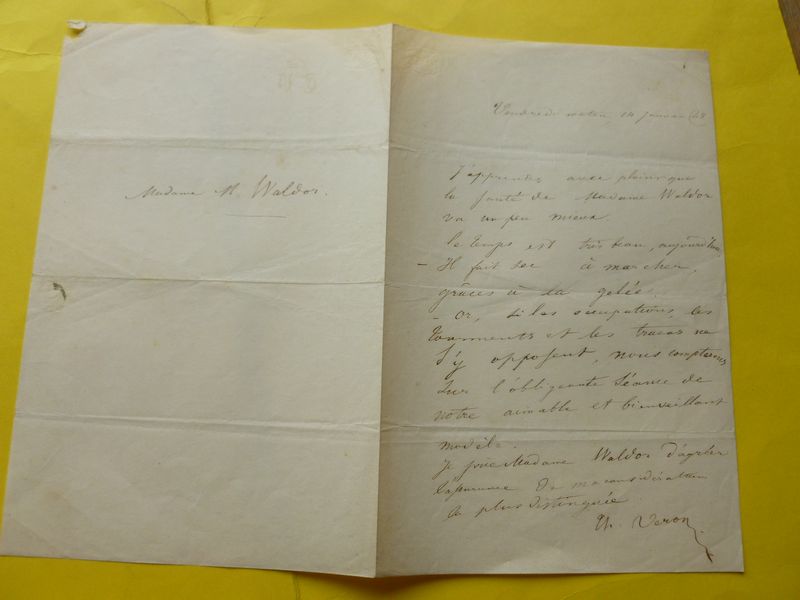 Madame M. Waldor.
Vendredi matin, 14 Janvier 48
J'apprends avec plaisir que
la santé de Madame Waldor
va un peu mieux.
le temps est très beau, aujourd'hui
– Il fait sec à marcher,
grâces à la gelée.
– or, si les occupations, les
tourments et les tracas ne
s'y opposent, nous comptons
sur l'obligeante séance de
notre aimable et bienveillant
modèle.
Je prie Madame Waldor d'agréer
l'assurance de ma considération
la plus distinguée.
Th. Veron